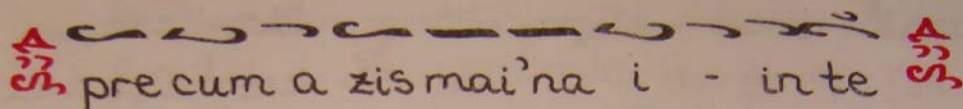 pre cum a zis mai'na i - in te